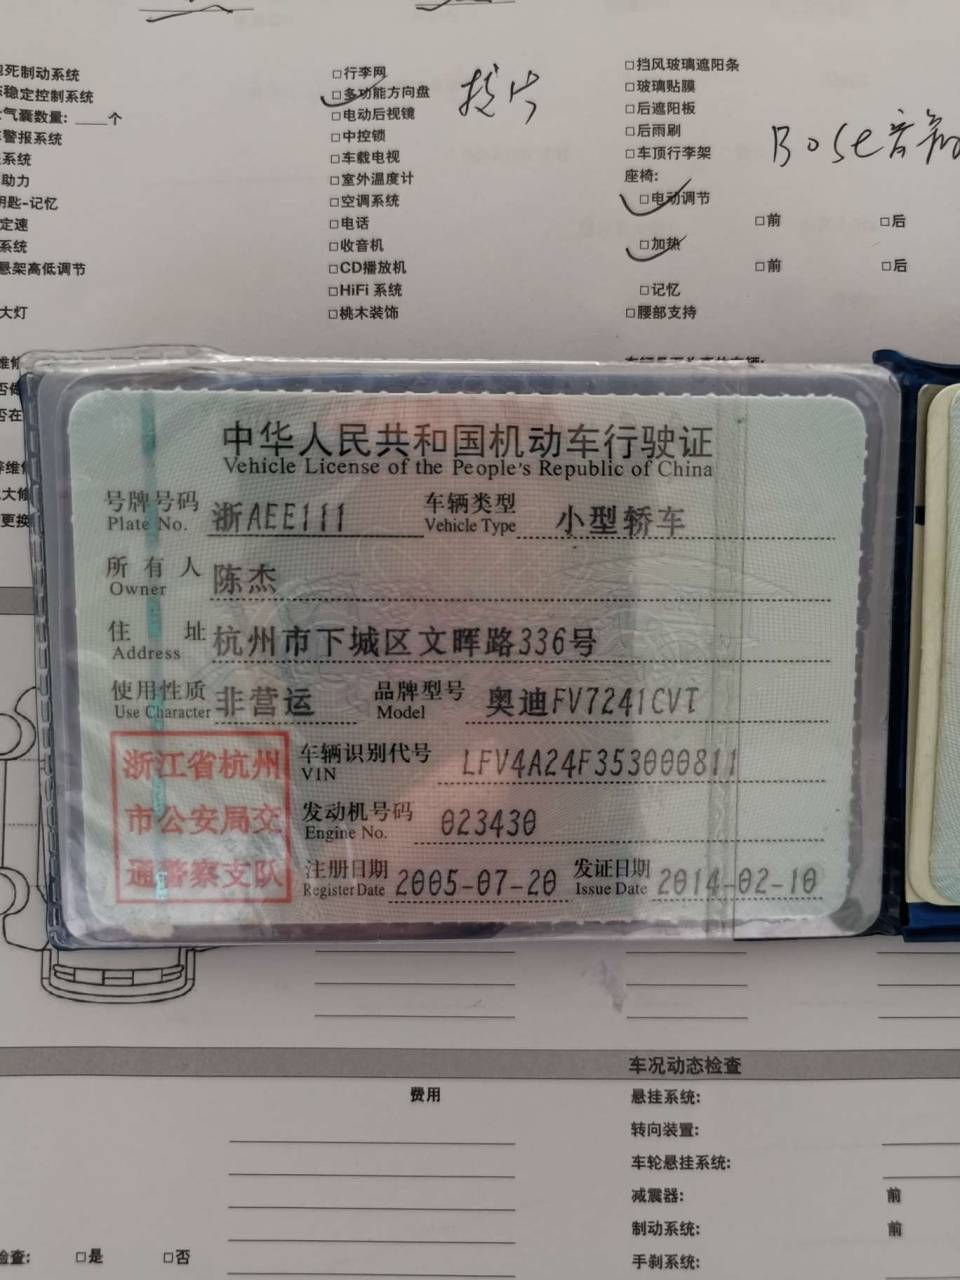 死制动系统
稳定控制系统
气囊数量: ____个
警报系统
系统
助力
钥匙-记忆
定速
系统
悬架高低调节
大灯
□行李网
□多功能方向盘
拨片
□电动后视镜
□中控锁
□车载电视
□室外温度计
□空调系统
□电话
□收音机
□CD播放机
□HiFi 系统
□桃木装饰
□挡风玻璃遮阳条
□玻璃贴膜
□后遮阳板
□后雨刷
□车顶行李架
Bose音响
座椅:
□电动调节
□前 □后
□加热
□前 □后
□记忆
□腰部支持
中华人民共和国机动车行驶证
Vehicle License of the People's Republic of China
号牌号码 浙AEE111 车辆类型 小型轿车
Plate No. Vehicle Type
所有人 陈杰
Owner
住址 杭州市下城区文晖路336号
Address
使用性质 非营运 品牌型号 奥迪FV7241CVT
Use Character Model
浙江省杭州
市公安局交
通警察支队
车辆识别代号 LFV4A24F353000811
VIN
发动机号码 023430
Engine No.
注册日期 2005-07-20 发证日期 2014-02-10
Register Date Issue Date
车况动态检查
费用
悬挂系统:
转向装置:
车轮悬挂系统:
减震器: 前
制动系统: 前
手刹系统:
检查: □是 □否